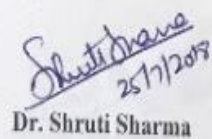 Shruti Sharma
25/7/2018
Dr. Shruti Sharma